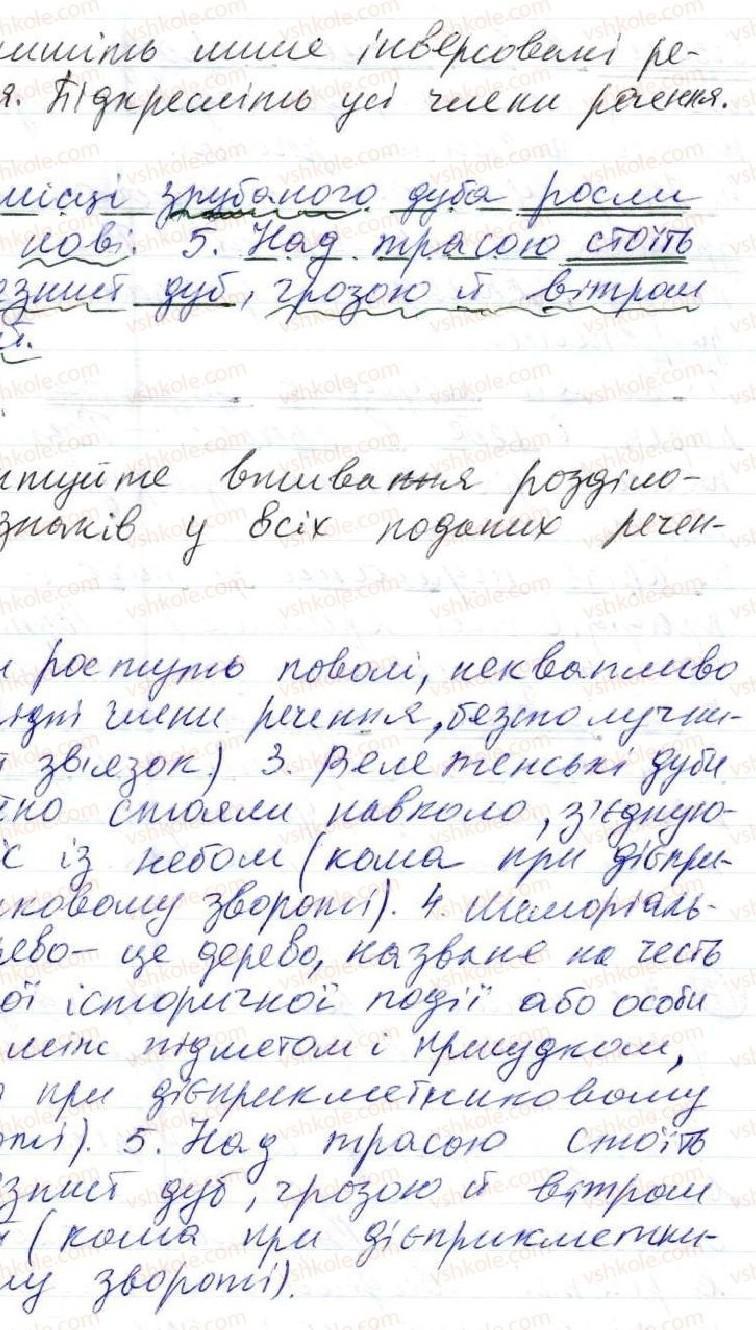 ишіть лише інверсовані ре-
я. Підкресліть усі члени речення.
місці зрубаного дуба росли
нові. 5. Над трасою стоїть
езний дуб, грозою й вітром
й.
нтуйте вживання розділо-
знаків у всіх поданих речен-
и ростуть поволі, неквапливо
рідні члени речення, безполучни-
й зв'язок) 3. Велетенські дуби
тно стояли навколо, з'єдную-
с із небом (кома при дієпри-
иковому звороті). 4. Меморіаль-
рево- це дерево, назване на честь
ої історичної події або особи
між підметом і присудком,
а при дієприкметниковому
оті). 5. Над трасою стоїть
езний дуб, грозою й вітром
й (кома при дієприкметни-
му звороті).